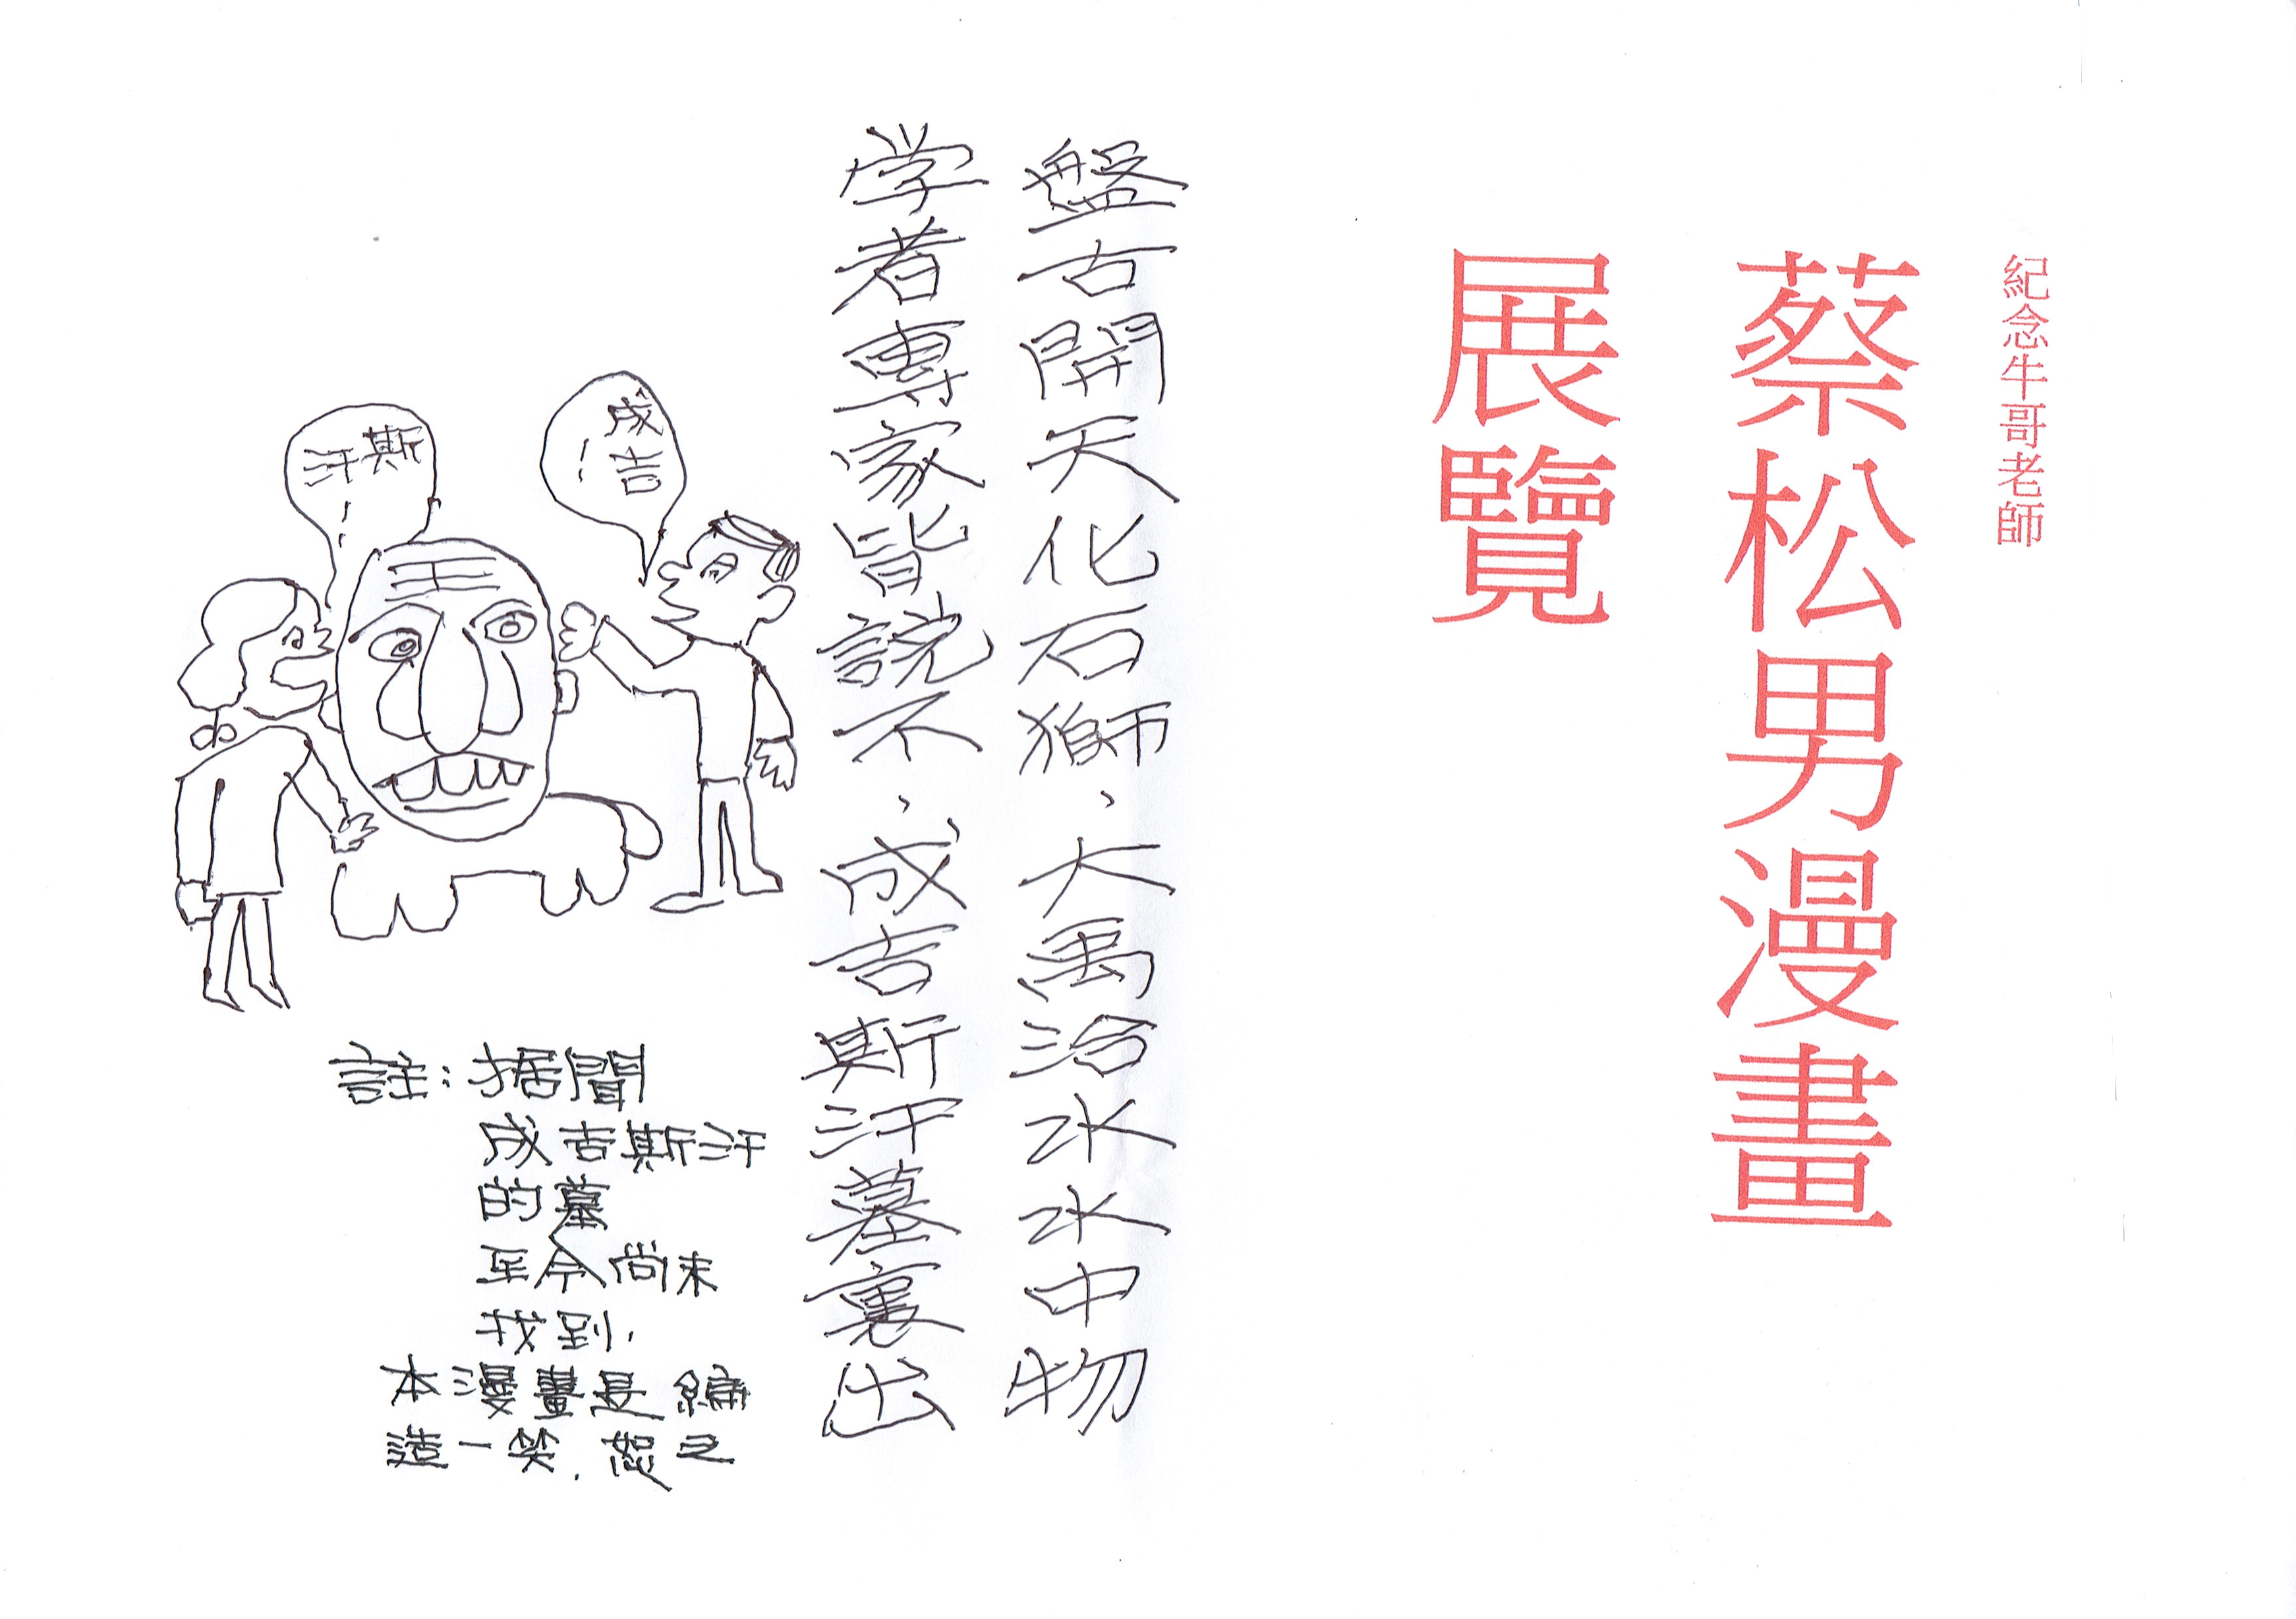 紀念牛哥老師
蔡松男漫畫
展覽
盤古開天化石獅，大禹治水水中物
学者專家皆説不，成吉斯汗墓裏出
成吉
！
斯
汗！
王
註：据聞
成吉斯汗
的墓
至今尚未
找到，
本漫畫是編
造一笑．恕之